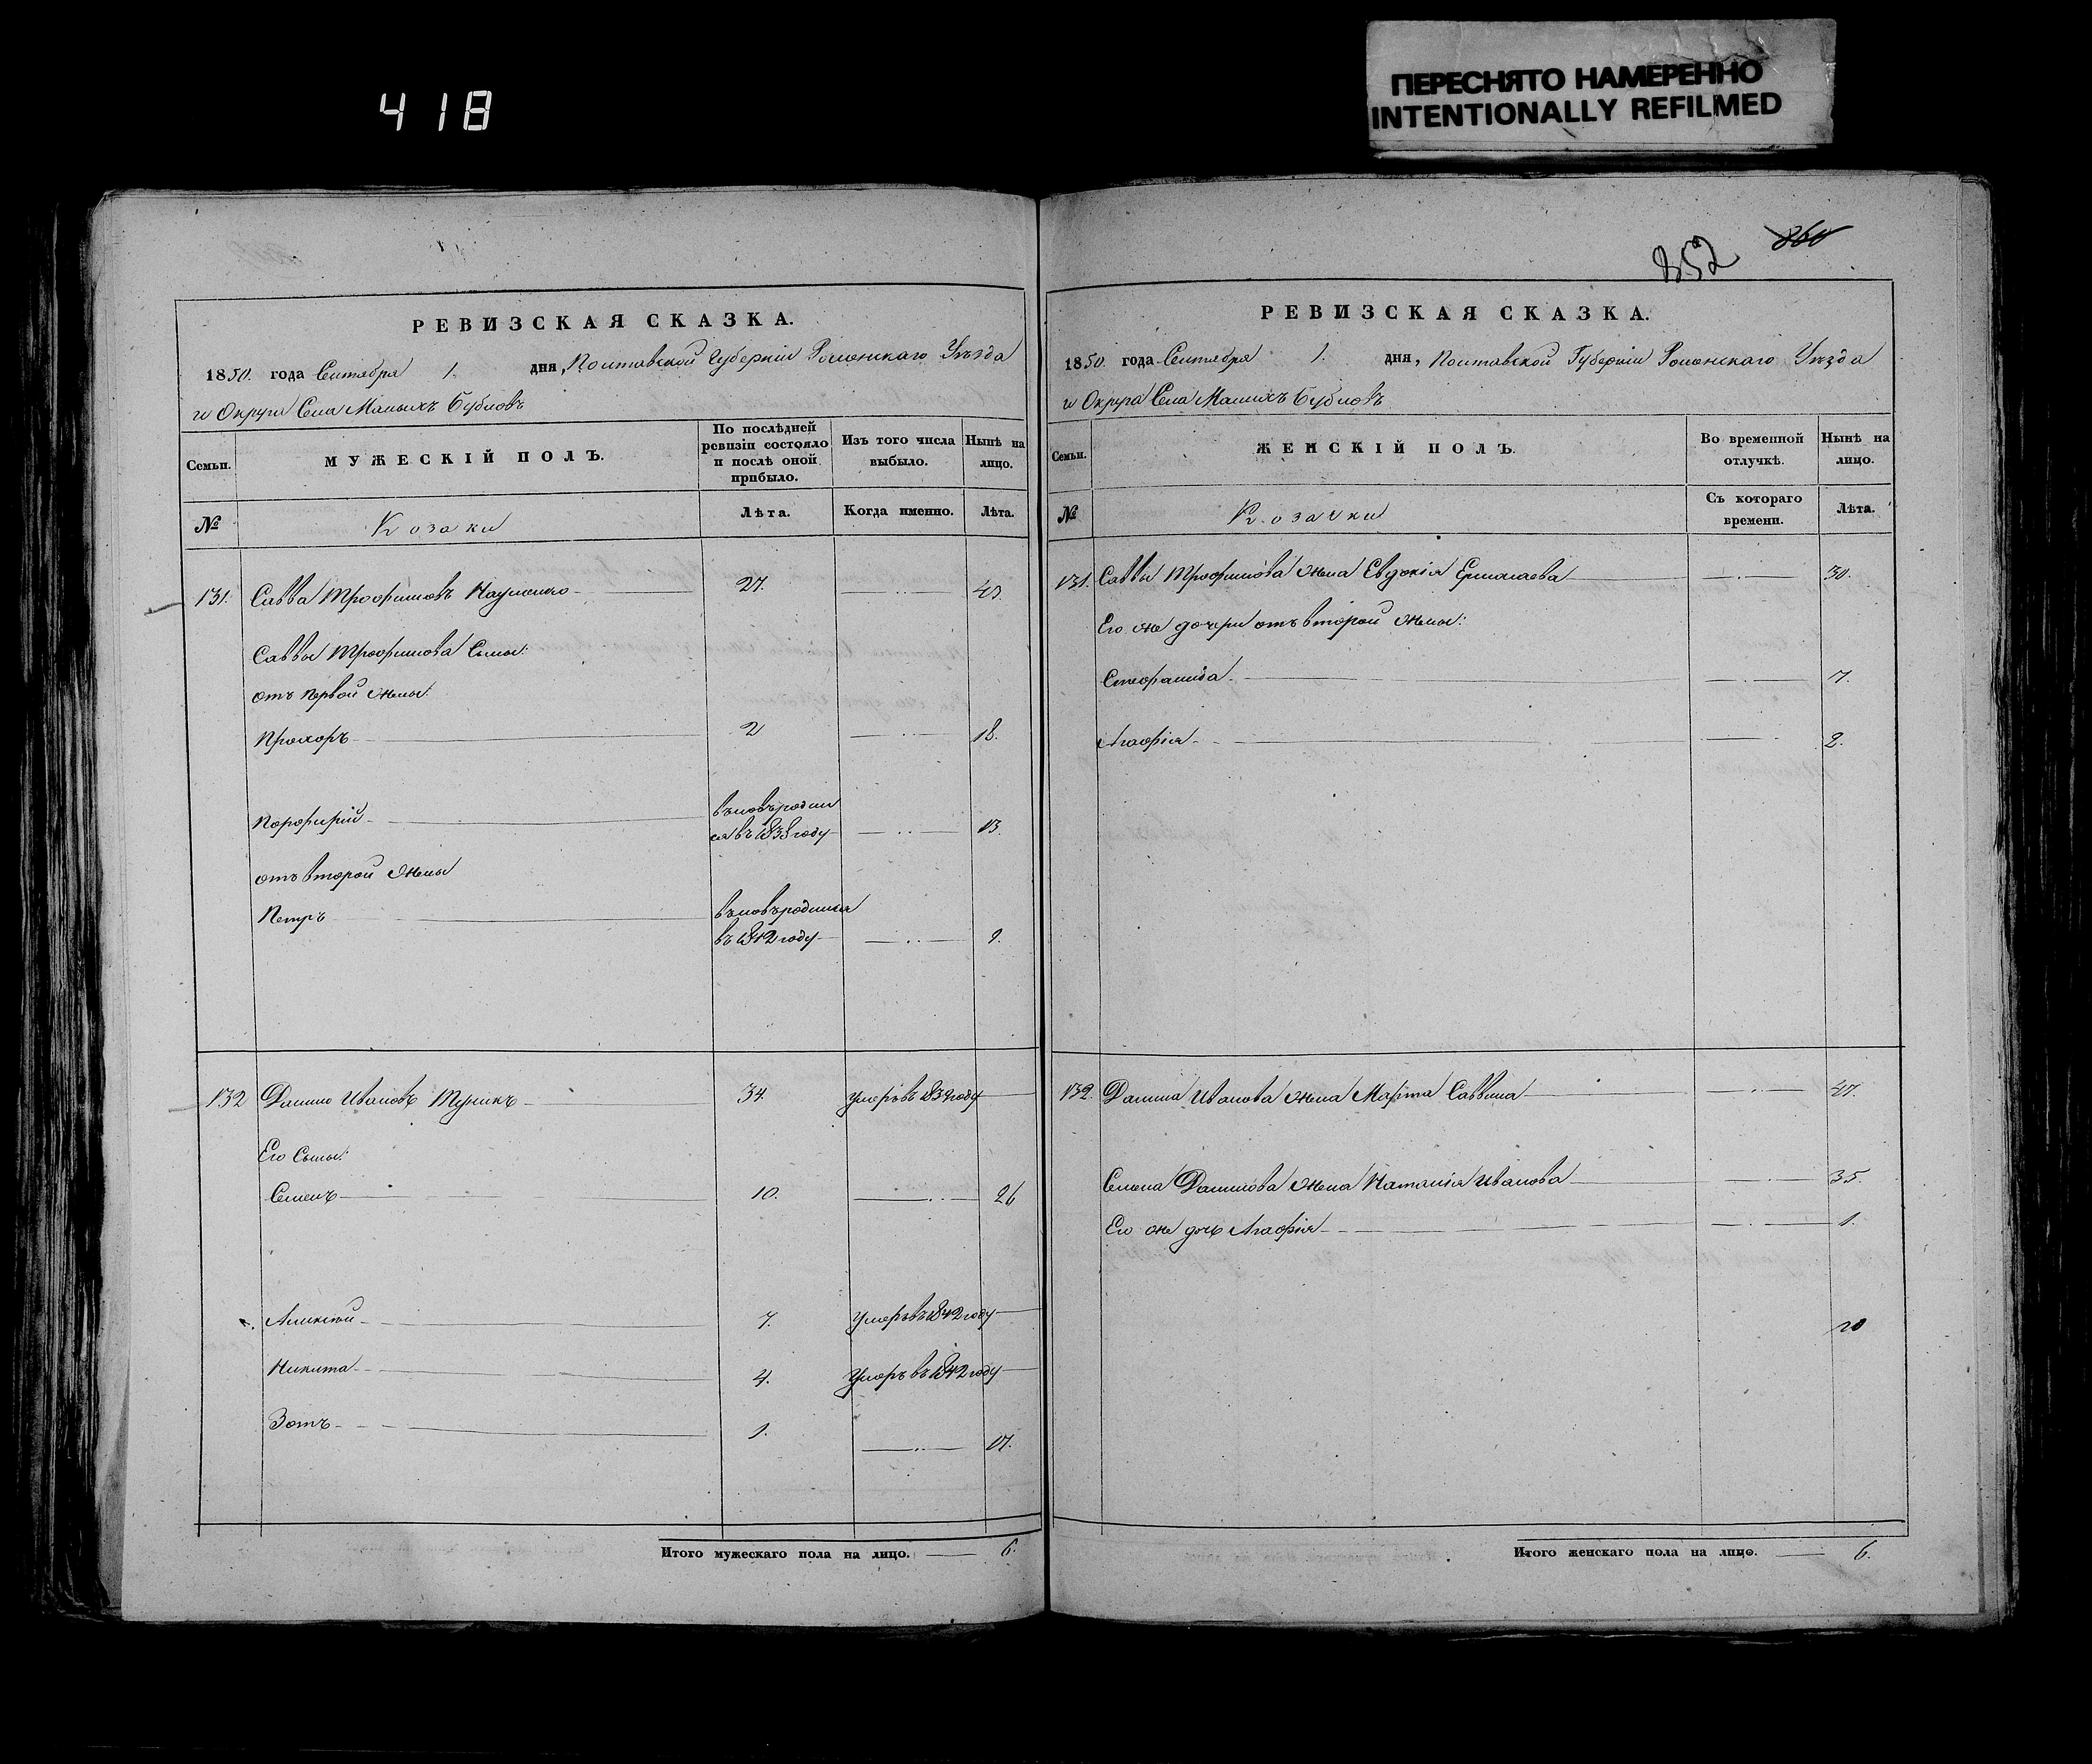 418
ПЕРЕСНЯТО НАМЕРЕННО
INTENTIONALLY REFILMED
852 860
РЕВИЗСКАЯ СКАЗКА.
1850. года Сентября 1. дня, Полтавской Губерніи Роменскаго Уѣзда
и Округа Села Малыхъ Бубновъ
Семьи. МУЖЕСКІЙ ПОЛЪ. По послѣдней ревизіи состояло и послѣ оной прибыло. Изъ того числа выбыло. Нынѣ на лицо.
№ Козаки Лѣта. Когда именно. Лѣта.
131. Савва Трофимовъ Науменко 27. 43.
Саввы Трофимова Сыны:
отъ первой жены:
Прохоръ 2 18.
Порфирій вновь родил
ся въ 1838 году 13.
отъ второй жены
Петръ вновь родился
въ 1842 году 9.
132 Данило Ивановъ Тупикъ 34. умеръ въ 1834 году
Его Сыны:
Семенъ 10. 26
Алексѣй 7. умеръ въ 1842 году
Никита 4. Умеръ въ 1842 году
Зотъ 1. 17.
Итого мужескаго пола на лицо. 6.
РЕВИЗСКАЯ СКАЗКА.
1850. года Сентября 1. дня, Полтавской Губерніи Роменскаго Уѣзда
и Округа Села Малыхъ Бубновъ
Семьи. ЖЕНСКІЙ ПОЛЪ. Во временной отлучкѣ. Нынѣ на лицо.
№ Козачки Съ котораго времени. Лѣта.
131. Саввы Трофимова жена Евдокія Ермолаева 30.
Его же дочери отъ второй жены:
Стефанида 7.
Агафія 2.
132. Данила Иванова жена Марѳа Саввина 47.
Семена Данилова жена Наталія Иванова 35.
Его же дочь Агафія 1.
Итого женскаго пола на лицо. 6.